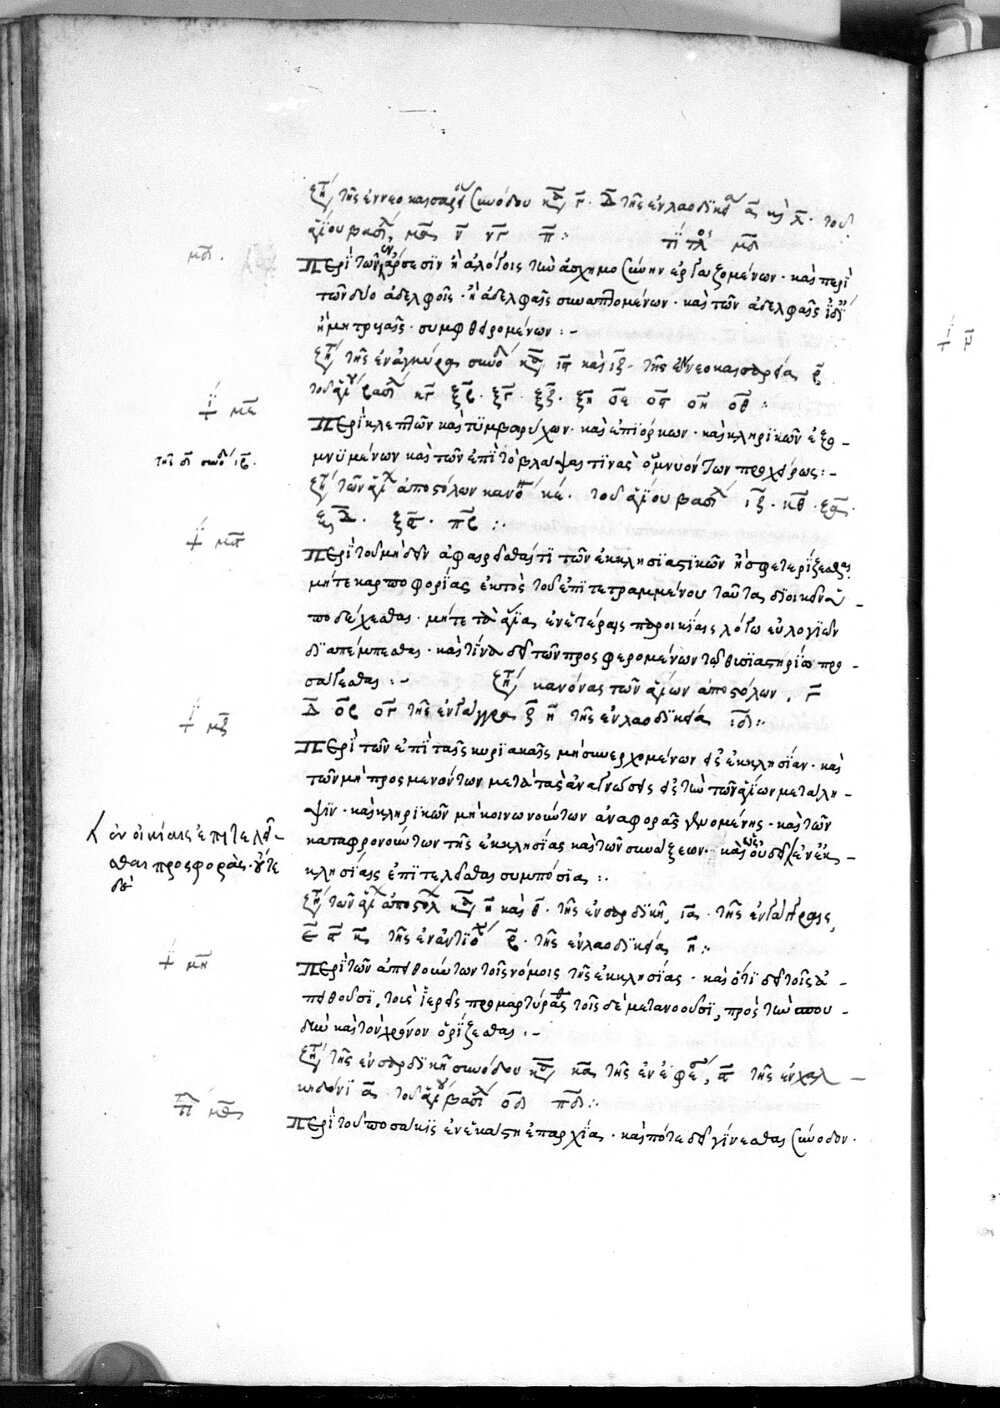 τῆς ἐν νεοκαισαρ συνόδου γ · δ τῆς ἐν λαοδικ λ · τοῦ
ἁγίου βασιλ ν νγ π :· τίτλ μδ
μδ · Περὶ τῶν ἄρσεσιν ἢ ἀλόγοις τὴν ἀσχημοσύνην ἐργαζομένων · καὶ περὶ
τῶν δύο ἀδελφοῖς · ἢ ἀδελφαῖς συναπτομένων · καὶ τῶν ἀδελφαῖς ἰδί
ἢ μητρυαῖς · συμφθειρομένων :-
τῆς ἐν ἀγκύρα συνοδ ιϛ καὶ ιζ · τῆς ἐν νεοκαισαρεία β
τοῦ ἁγίου βασιλ ξγ · ξζ · ξη οε οϛ οη οθ :
τί με Περὶ κλεπτῶν καὶ τυμβωρύχων · καὶ ἐπιόρκων · καὶ κληρικῶν ἐξο-
μνυμένων καὶ τῶν ἐπὶ τὸ βλάψαι τινὰς ὀμνυόντων προχείρως :-
τῶν ἁγ ἀποστόλων κανο κε · τοῦ ἁγίου βασιλ ιζ · κθ ·
ξδ · :·
τί μϛ Περὶ τοῦ μηδὲν ἀφαιρεῖσθαί τι τῶν ἐκκλησιαστικῶν ἢ σφετερίζεσθαι
μήτε καρποφορίας ἐκτὸς τοῦ ἐπιτετραμμένου ταῦτας διοικεῖν ἀ-
ποδέχεσθαι · μήτε τὰ ἅγια ἐν ἑτέραις παροικίαις λόγω εὐλογιῶν
διαπέμπεσθαι · καὶ τίνα δεῖ τῶν προσφερομένων τῶ θυσιαστηρίω προ-
σάγεσθαι :- κανόνας τῶν ἁγίων ἀποστόλων · γ
δ οβ ογ τῆς ἐν γάγγρα ζ η τῆς ἐν λαοδικεία ιδ :·
τί μζ Περὶ τῶν ἐπὶ ταῖς κυριακαῖς μὴ συνερχομένων εἰς ἐκκλησίαν · καὶ
τῶν μὴ προσμενόντων μετὰ τὰς ἀναγνώσεις εἰς τὴν τῶν ἁγίων μετάλη-
ψιν · καὶ κληρικῶν μὴ κοινωνούντων ἀναφορᾶς γενομένης · καὶ τῶν
καταφρονούντων τῆς ἐκκλησίας καὶ τῶν συνάξεων · καὶ ὡς οὐ δεῖ ἐν ἐκ-
ἐν οἰκίαις ἐπιτελεῖ-
σθαι προσφοράς · οὔτε
δὲ
κλησίαις ἐπιτελεῖσθαι συμπόσια :·
τῶν ἁγ ἀποστολ η καὶ θ · τῆς ἐν σαρδικῆ, ια · τῆς ἐν γάγγραις,
ε ϛ κ τῆς ἐν ἀντιο β · τῆς ἐν λαοδικεία η :·
τί μη Περὶ τῶν ἀπειθούντων τοῖς νόμοις τῆς ἐκκλησίας · καὶ ὅτι δεῖ τοῖς ἀ-
πειθοῦσι, τοὺς ἱερεῖς προμαρτύρασθαι τοῖς δὲ μετανοοῦσι, πρὸς τὴν σπου-
δὴν καὶ τὸν χρόνον ὁρίζεσθαι :-
τῆς ἐν σαρδικῆ συνόδου κα τῆς ἐν ἐφέσ, ϛ τῆς ἐν χαλ-
κηδόνι α τοῦ ἁγ βασιλ οδ πδ :·
τί μθ Περὶ τοῦ ποσάκις ἐν ἑκάστη ἐπαρχία · καὶ πότε δεῖ γίνεσθαι σύνοδον ·